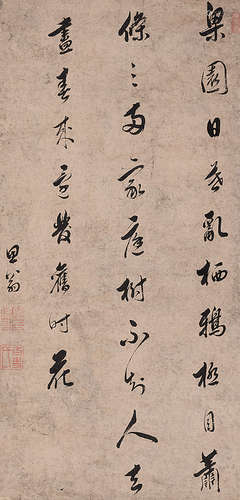 梁園日暮亂栖鴉極目蕭
條三兩家庭樹不知人去
盡春來還發舊時花
思翁